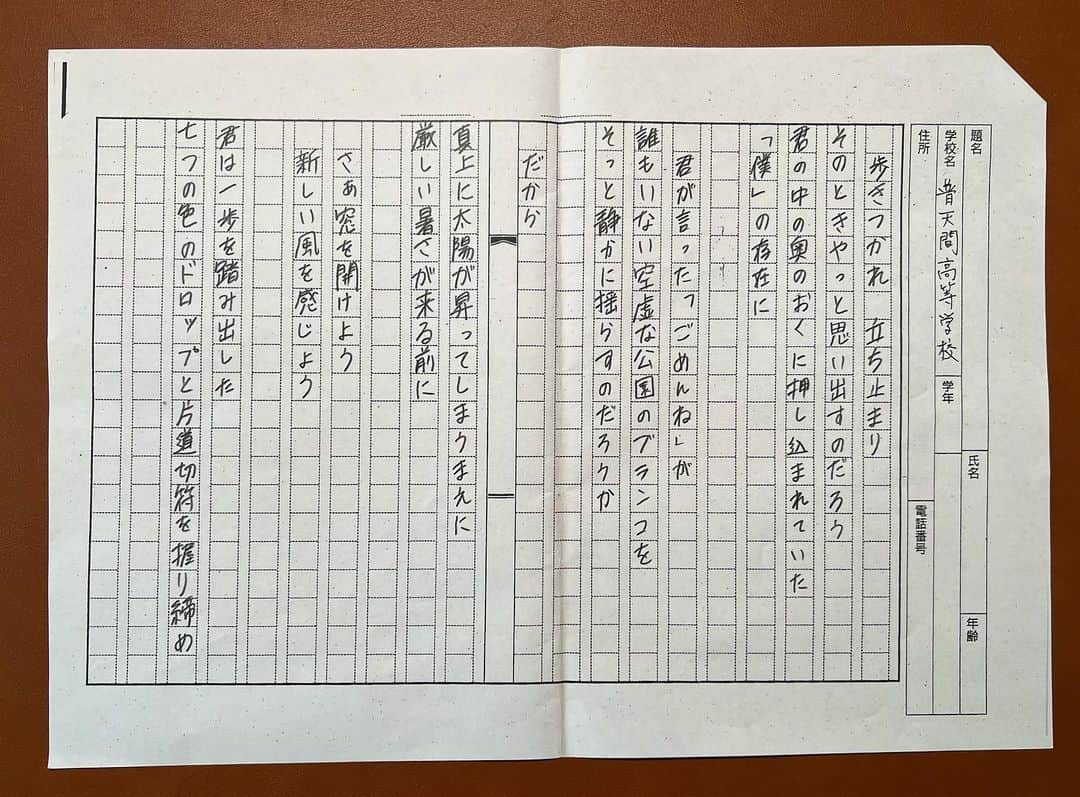 題名
学校名 普天間高等学校
学年
氏名
年齢
住所
電話番号
歩きつかれ 立ち止まり
そのときやっと思い出すのだろう
君の中の奥のおくに押し込まれていた
「僕」の存在に
君が言った「ごめんね」が
誰もいない空虚な公園のブランコを
そっと静かに揺らすのだろうか
だから
真上に太陽が昇ってしまうまえに
厳しい暑さが来る前に
さぁ窓を開けよう
新しい風を感じよう
君は一歩を踏み出した
七つの色のドロップと片道切符を握り締め